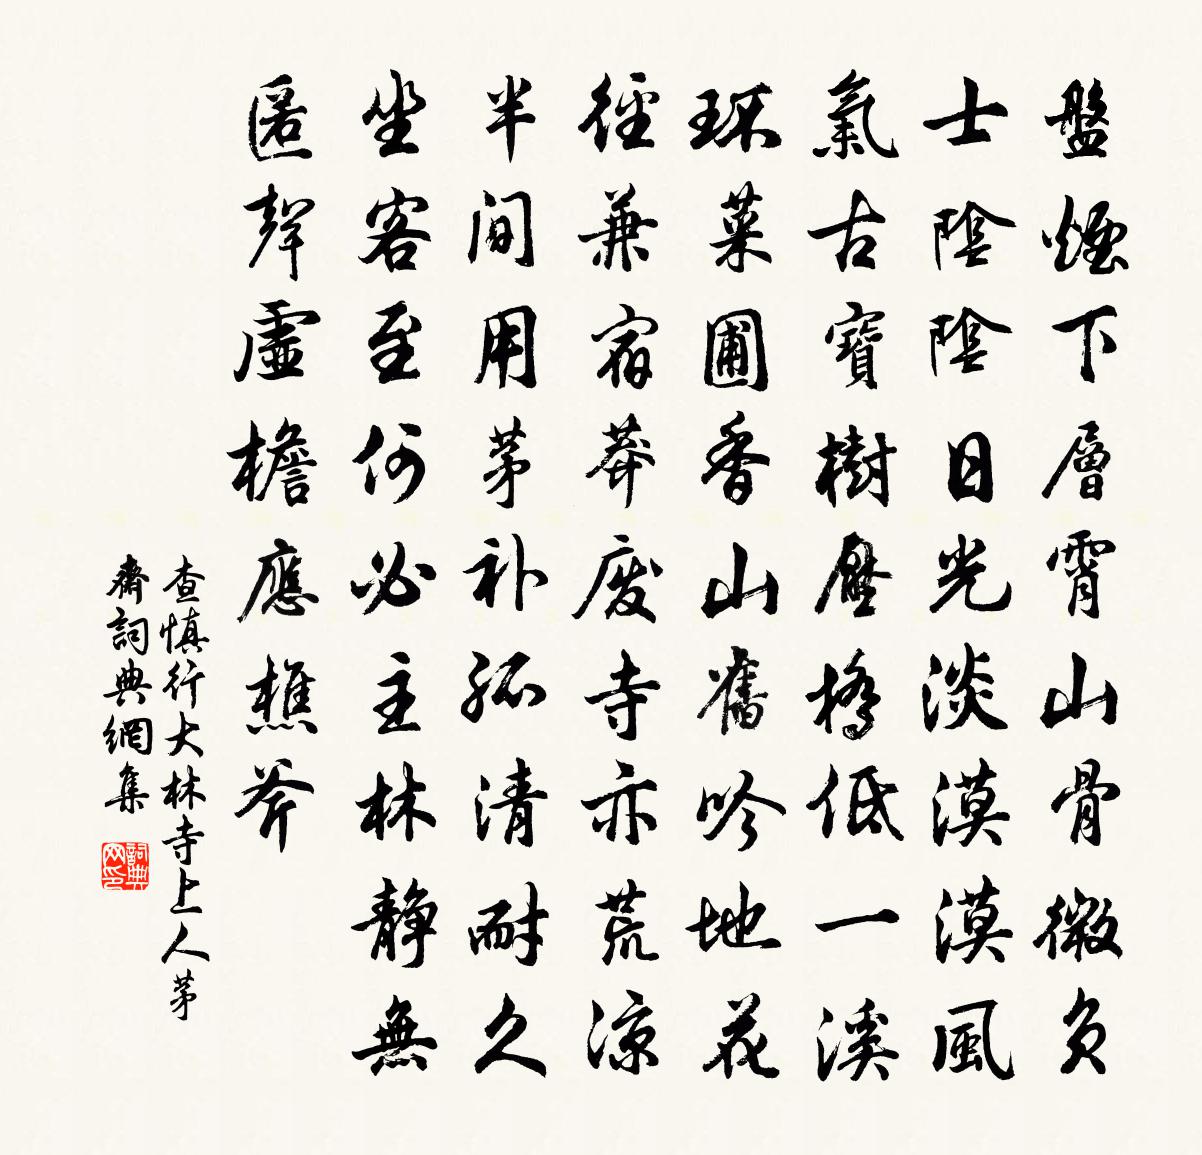 盤煙下層霄山骨微負
士陰陰日光淡漠漠風
氣古寶樹壓橋低一溪
环菜圃香山舊吟地花
徑兼宿莽廢寺亦荒涼
半间用茅补孤清耐久
坐客至何必主林靜無
匿聲虛檐應樵斧
查慎行大林寺上人茅
齋詞典網集
詞典网印